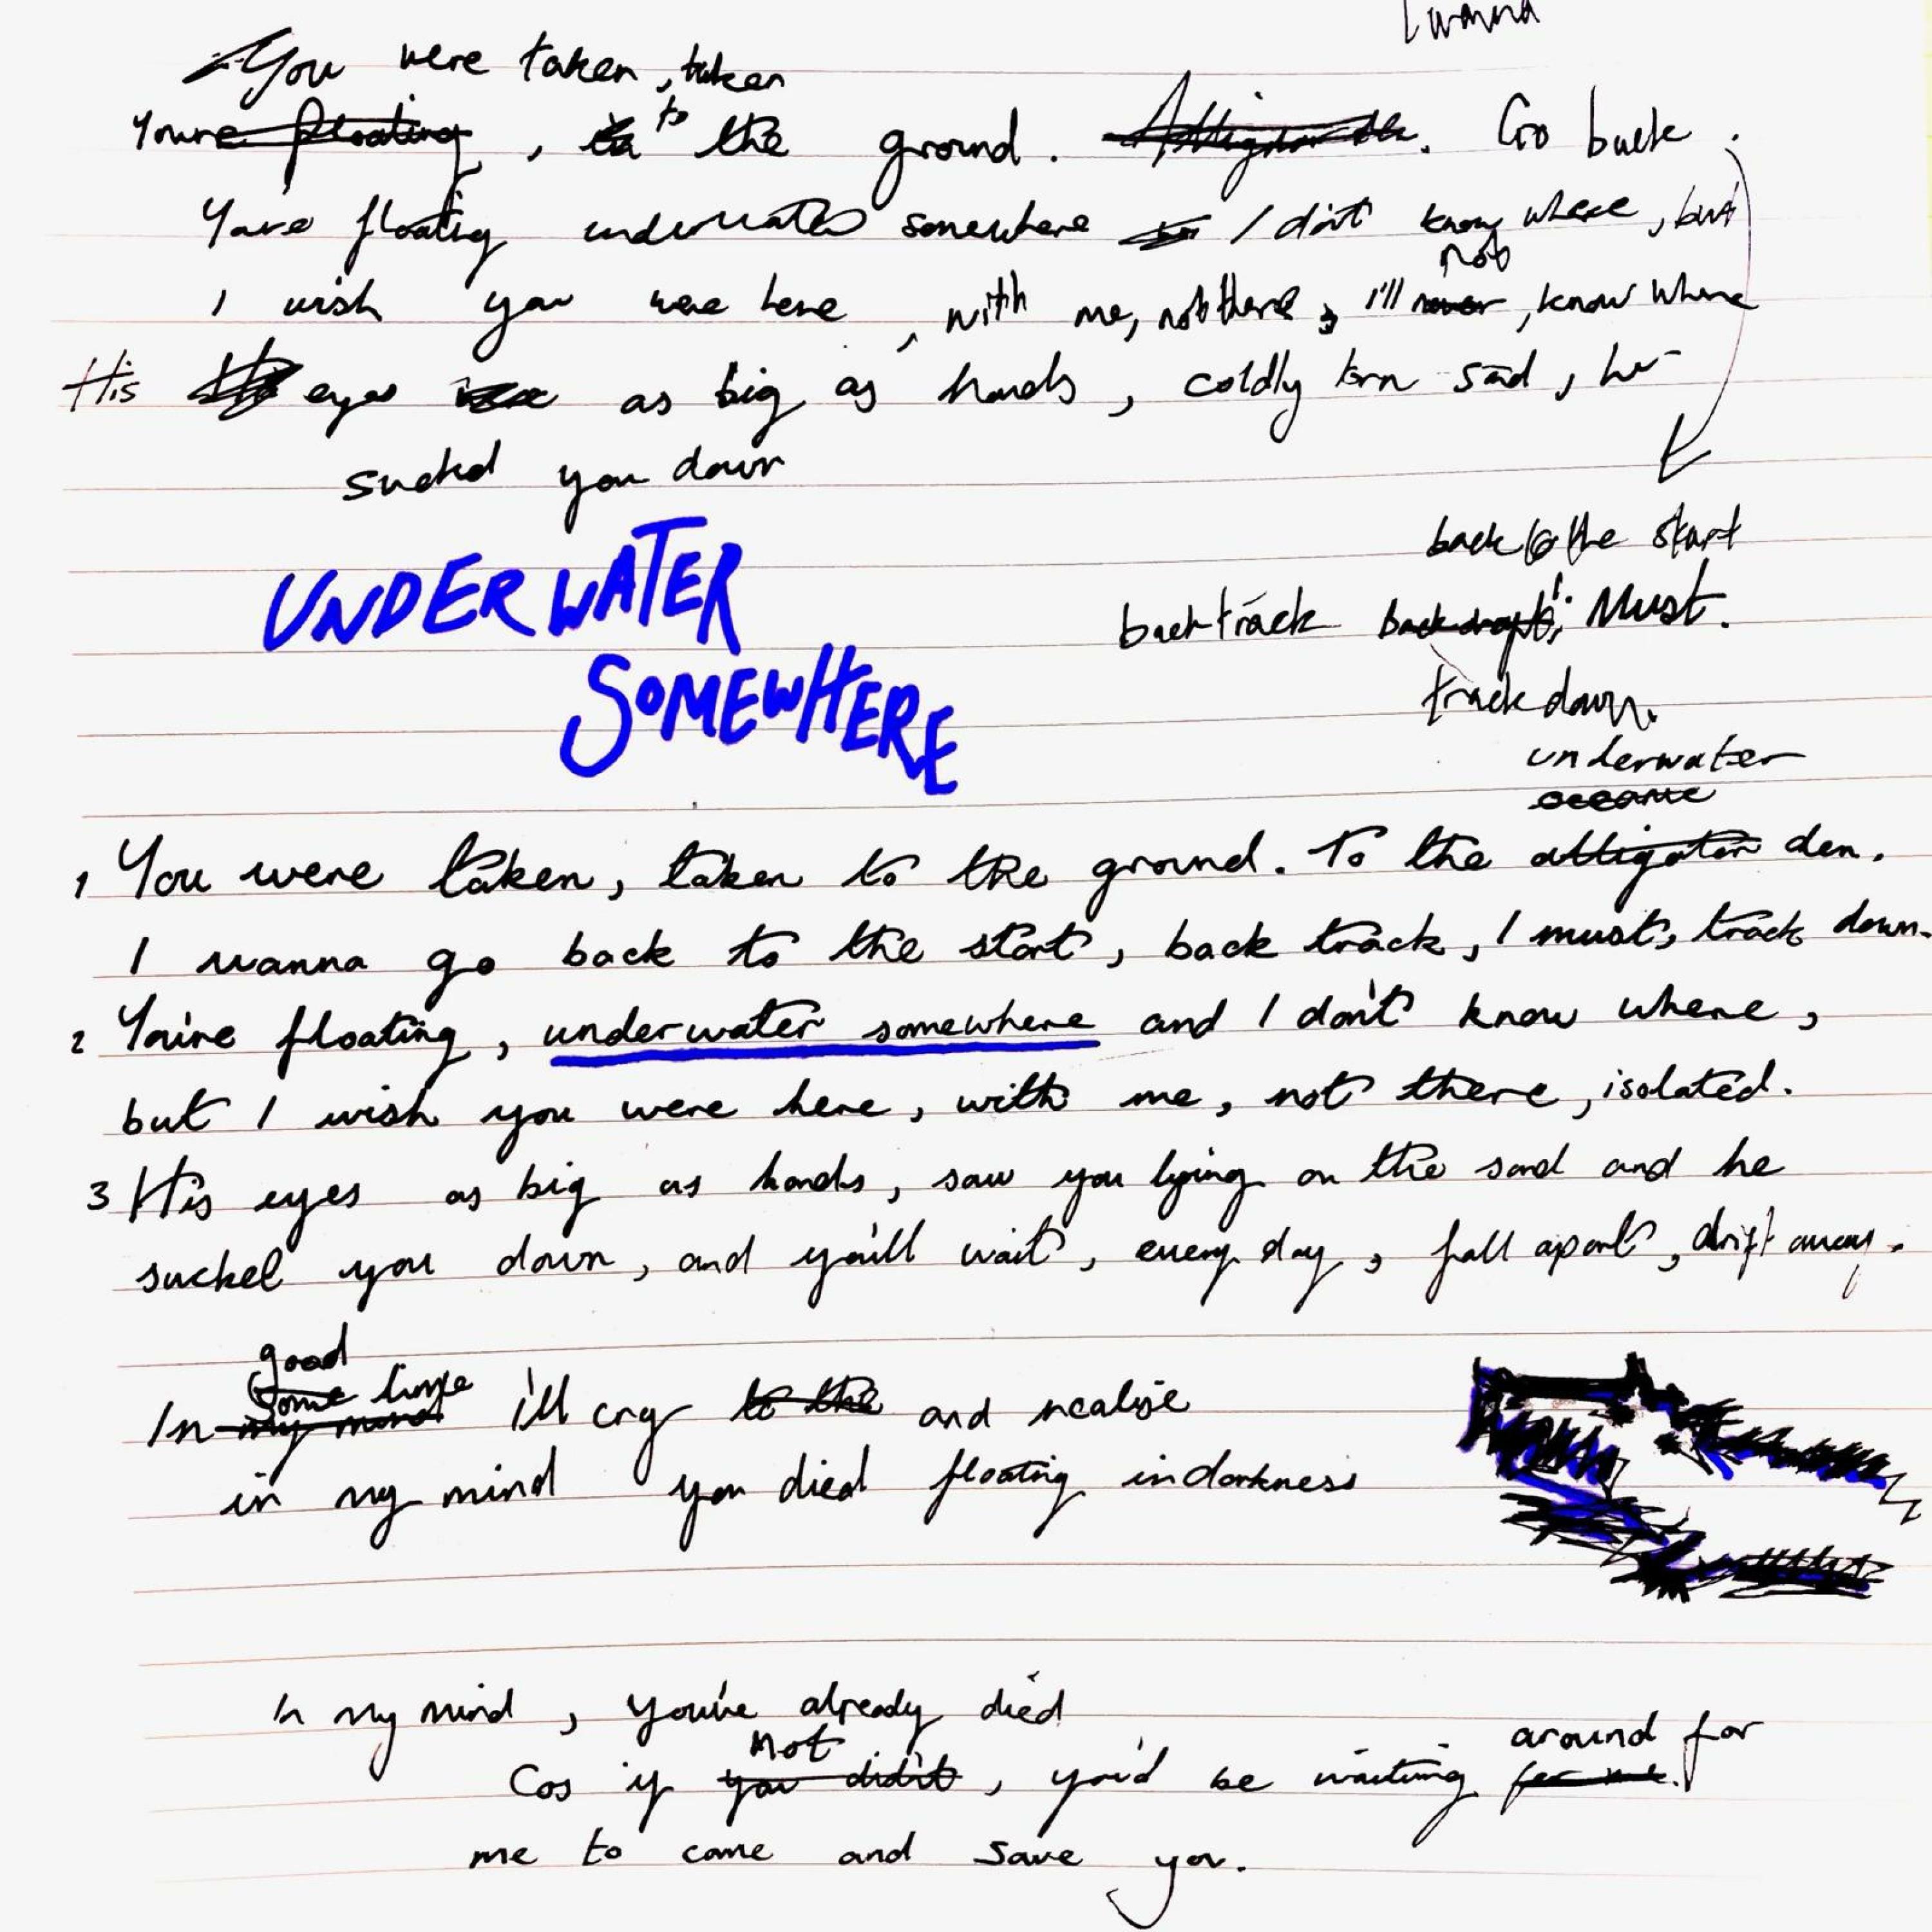 I wanna
You were taken, taken
Youre floating, to the ground. Go back.
Youre floating underwater somewhere I don't know where, but
not
I wish you were here, with me, not there, I'll never, know where
His eyes as big as hands, coldly torn sad, he
suckd you down
UNDERWATER
SOMEWHERE
back to the start
backtrack I. Must.
track down.
underwater
oceanic
1 You were taken, taken to the ground. To the alligator den.
I wanna go back to the start, back track, I must, track down.
2 You're floating, underwater somewhere and I don't know where,
but I wish you were here, with me, not there, isolated.
3 His eyes as big as hands, saw you lying on the sand and he
sucked you down, and you'll wait, every day, fall apart, drift away.
good
some time
In my mind i'll cry to the and realise
in my mind you died floating in darkness
In my mind, you've already died
not around for
Cos if you didn't, you'd be waiting for me.
me to come and save you.